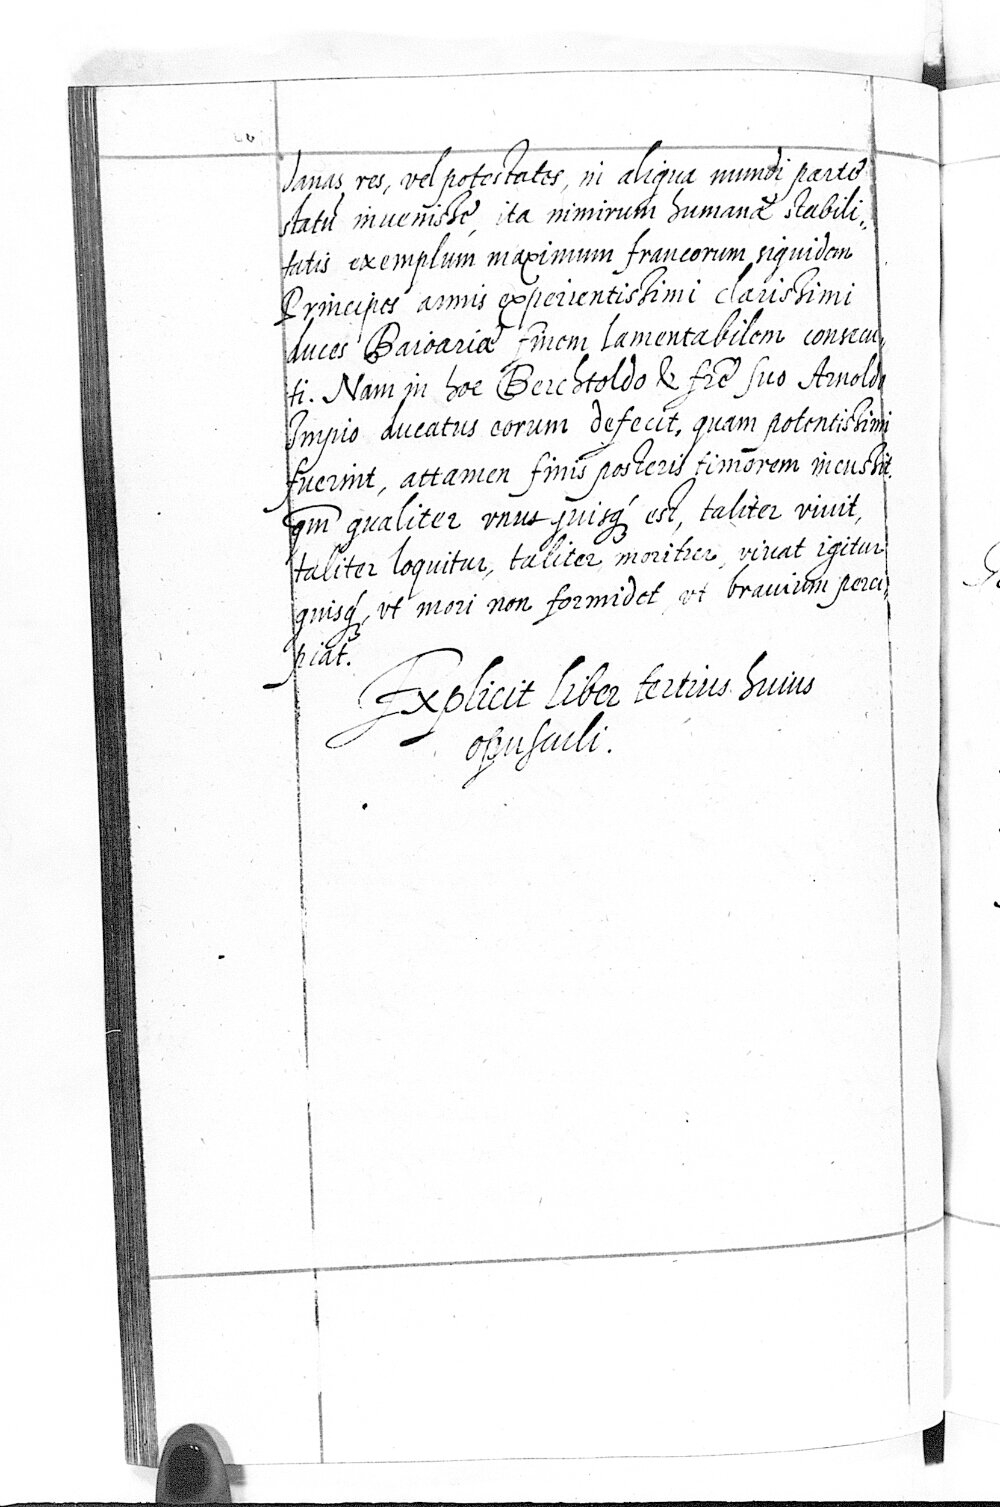 danas res, vel potestates, in aliqua mundi parte
statū invenisse, ita nimirum humanæ stabili„
tatis exemplum maximum francorum siquidem
Principes armis experientissimi clarissimi
duces Baioariæ finem lamentabilem consecu„
ti. Nam in hoc Berchtoldo & fr̄e suo Arnoldo
Impio ducatus eorum defecit, quam potentissimi
fuerint, attamen finis posteris timorem incussit.
qm̄ qualiter vnusquisq́ est, taliter viuit,
taliter loquitur, taliter moritur, viuat igitur
quisq́, vt mori non formidet vt brauium perci„
piat.
Explicit liber tertius huius
opusculi.